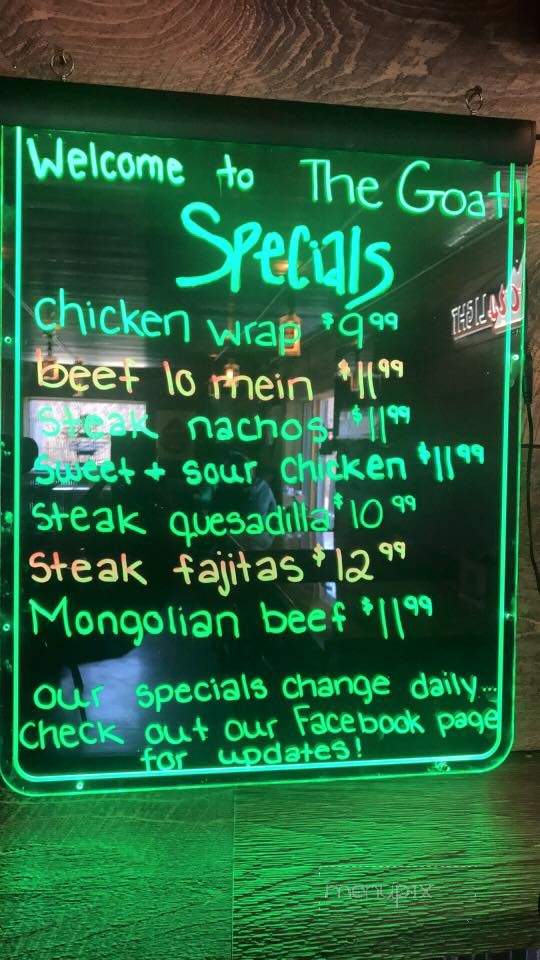 Welcome to The Goat!
Specials
chicken wrap $9.99
beef lo mein $11.99
Steak nachos $11.99
Sweet + sour chicken $11.99
Steak quesadilla $10.99
Steak fajitas $12.99
Mongolian beef $11.99
our specials change daily...
check out our Facebook page
for updates!
menupix